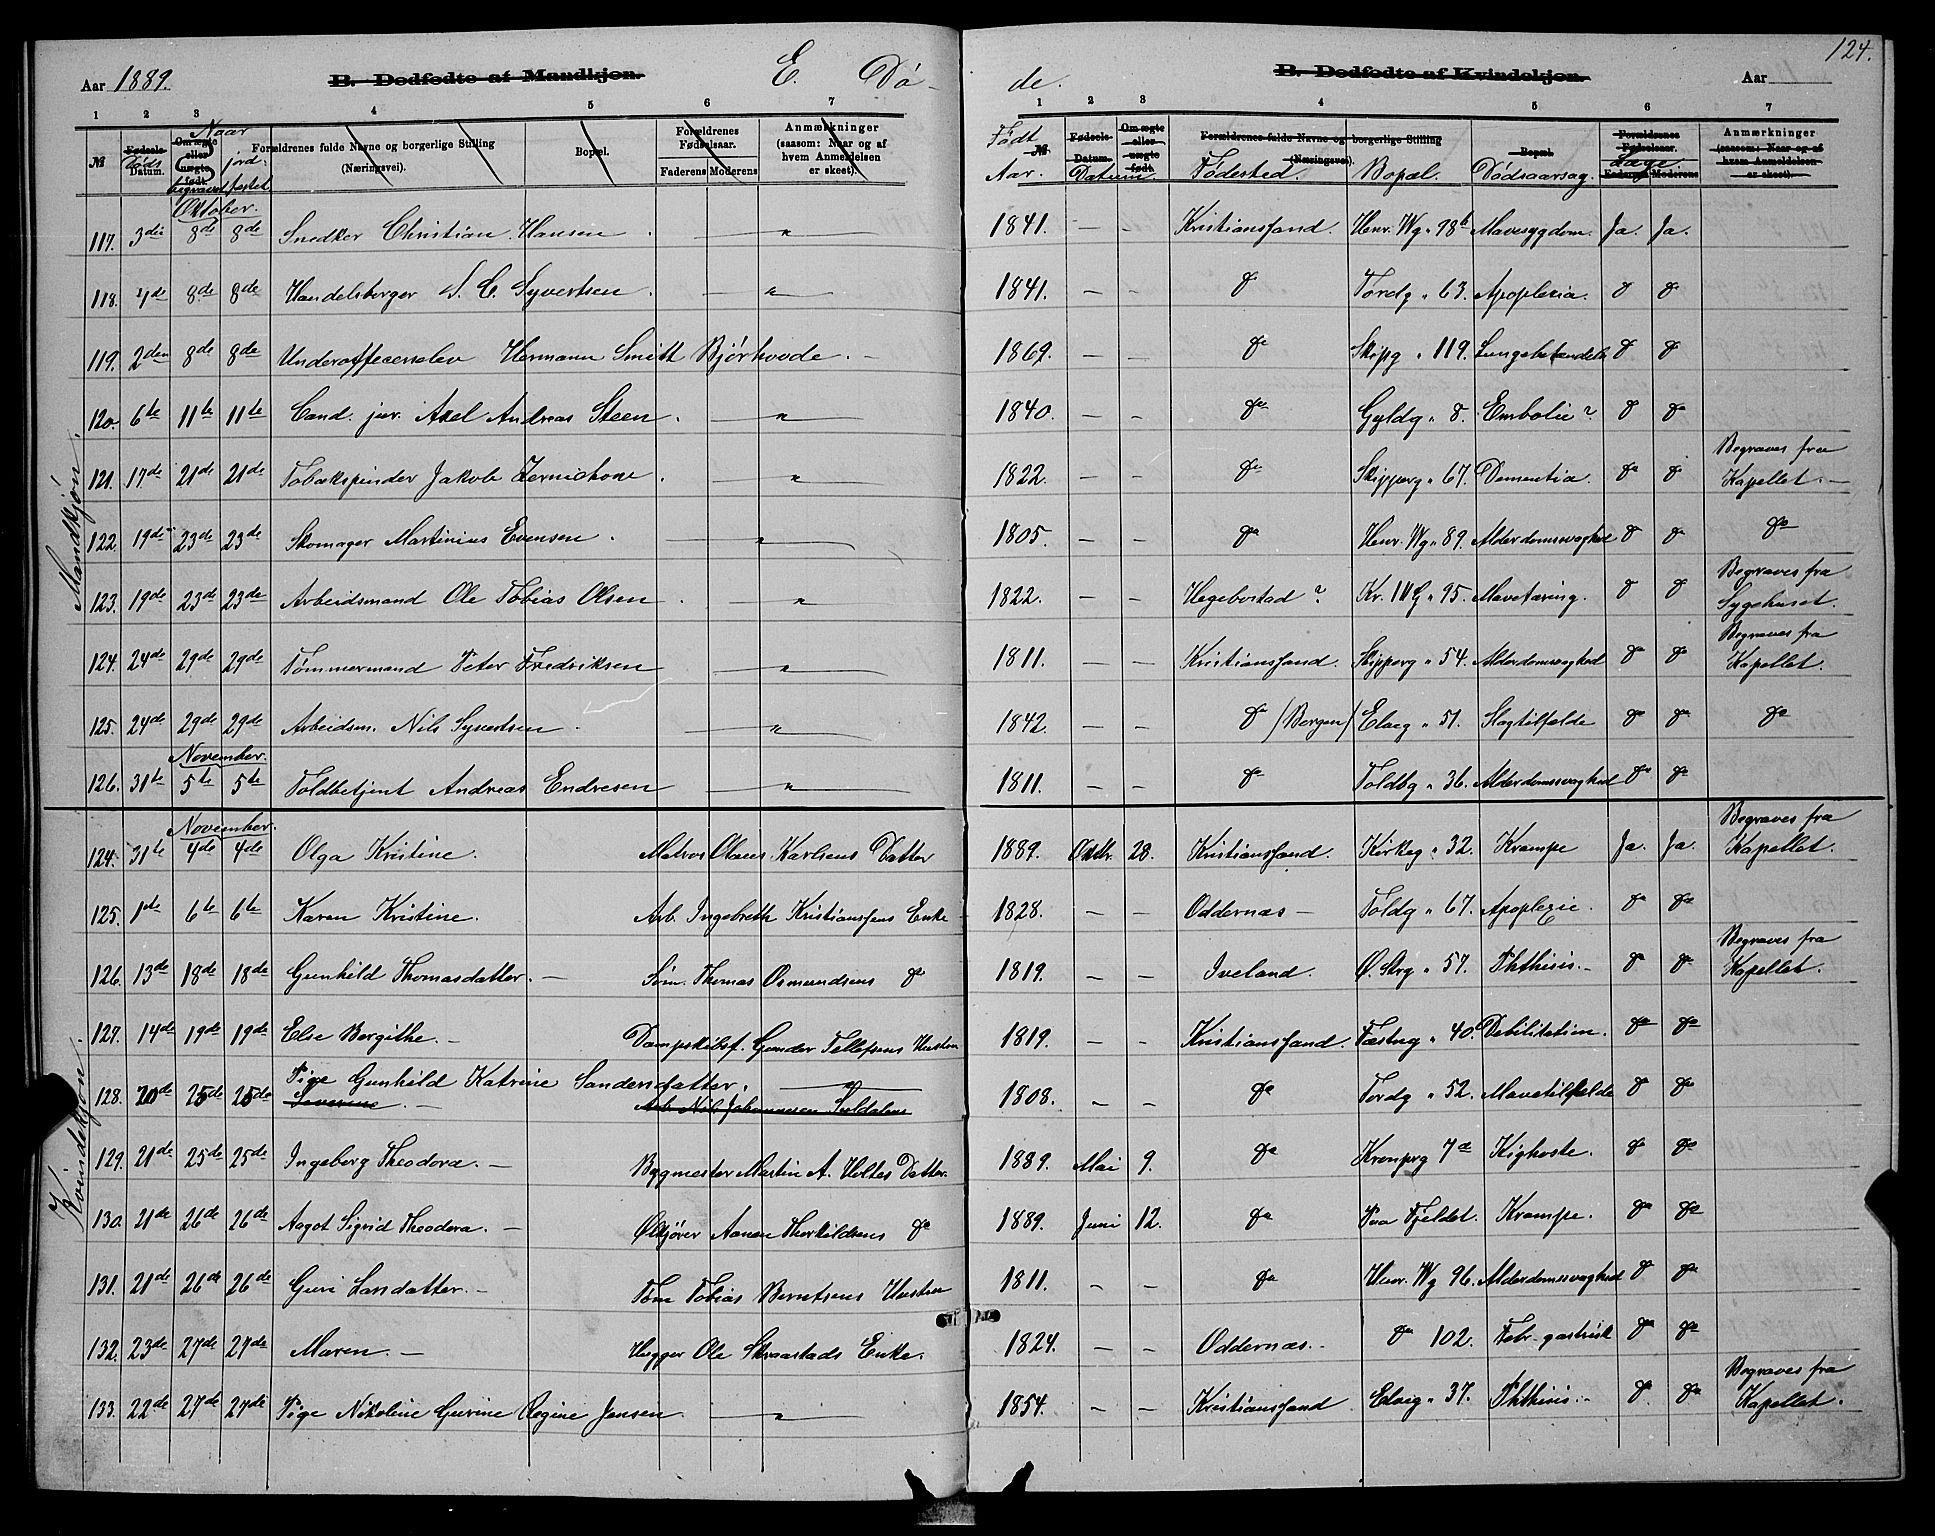 Aar 1889. B. Dødfødte af Mandkjøn. E. Dø-
de. B. Dødfødte af Kvindekjøn. Aar 124.
1 2 3 4 5 6 7
№ Fødsels- Døds Datum. Naar Om ægte eller uægte født. begravet jord-fæstet Forældrenes fulde Navne og borgerlige Stilling (Næringsvei). Bopæl. Forældrenes Fødselsaar. Faderens Moderens Anmærkninger (saasom: Naar og af hvem Anmeldelsen er skeet).
1 2 3 4 5 6 7
Født Aar. № Fødsels- Datum. Datum Om ægte eller uægte født. Forældrenes fulde Navne og borgerlige Stilling (Næringsvei). Fødested. Bopæl. Bopæl. Dødsaarsag. Forældrenes Fødselsaar. Læge Faderens Moderens Anmærkninger (saasom: Naar og af hvem Anmeldelsen er skeet).
Mandkjøn.
Oktober.
117. 3die 8de 8de Snedker Christian Hansen. — " — 1841. — — Kristianssand. Henr. Wg. " 98b Mavesygdom. Ja. Ja.
118. 4de 8de 8de Handelsborger S. C. Syvertsen. — " — 1841. — — do Tordg " 63. Apoplexia. do do
119. 2den 8de 8de Underofficerselev Hermann Smitt Bjørkvode. — 1869. — — do Skipg " 119. do do
120. 6te 11te 11te Cand. jur. Axel Andreas Steen. — " — 1840. — — do Gyldg " 8. Embolie? do do
121. 17de 21de 21de Tobakspinder Jakob Zernichow. — " — 1822. — — do Skipperg " 67. Dementia. do do Begraves fra Kapellet. —
122. 19de 23de 23de Skomager Martinius Evensen. — " — 1805. — — do Henr. Wg " 89. Alderdomssvaghed do do do
123. 19de 23de 23de Arbeidsmand Ole Tobias Olsen. — " — 1822. — — Hegebostad? Kr. IV G " 95. Mavetæring. do do Begraves fra Sygehuset.
124. 24de 29de 29de Tømmermand Peter Fredriksen — " — 1811. — — Kristianssand. Skipperg " 54. Alderdomssvaghed do do Begraves fra Kapellet.
125. 24de 29de 29de Arbeidsm. Nils Syvertsen. — " — 1842. — — do (Bergen) Elveg " 51. Slagtilfælde do do do
November.
126. 31te 5te 5te Toldbetjent Andreas Endresen — " — 1811. — — do Toldbg " 36. Alderdomssvaghed do do
Kvindekjøn.
November.
124. 31te 4de 4de Olga Kristine. Matros Olaus Karlsens Datter 1889. Oktbr. 28. Kristianssand. Kirkeg " 32. Krampe Ja. Ja. Begraves fra Kapellet.
125. 1ste 6te 6te Karen Kristine. Arb. Ingebreth Kristiansens Enke — 1828. — — Oddernæs — Toldg " 67. Apoplexie. do do
126. 13de 18de 18de Gunhild Thomasdatter. — Søm. Thomas Osmundsens do 1819. — — Iveland. Ø. Strg " 57. Phthisis. — do do Begraves fra Kapellet.
127. 14de 19de 19de Else Bergithe. — Dampskibsf. Gunder Tellefsens Hustru 1819. — — Kristianssand. Fæstng " 40. Debilitation. do do
128. 20de 25de 25de Pige Gunhild Katrine Sandersdatter. — " — 1808. — — do Tordg " 52. Mavetilfælde do do
Severine. — Arb. Nils Johannesen Suldalens
129. 21de 25de 25de Ingeborg Theodora. — Bygmester Martin A. Holtes Datter. 1889. Mai 9. do Kronprg 7a Kighoste. do do
130. 21de 26de 26de Aagot Sigrid Theodora. — Ølkjører Aanen Thorkildsens do 1889. Juni 12. do Paa Fjeldet. Krampe. do do
131. 21de 26de 26de Guri Larsdatter. — Tøm Tobias Berntsens Hustru 1811. — — do Henr. Wg 96. Alderdomssvaghed do do
132. 23de 27de 27de Maren. — Hugger Ole Skraastads Enke. 1824. — — Oddernæs. — do 102. Febr. gastrisk do do
133. 22de 27de 27de Pige Nikoline Gurine Regine Jensen. — " — 1854. — — Kristianssand Elveg " 37. Phthisis. — do do Begraves fra Kapellet.